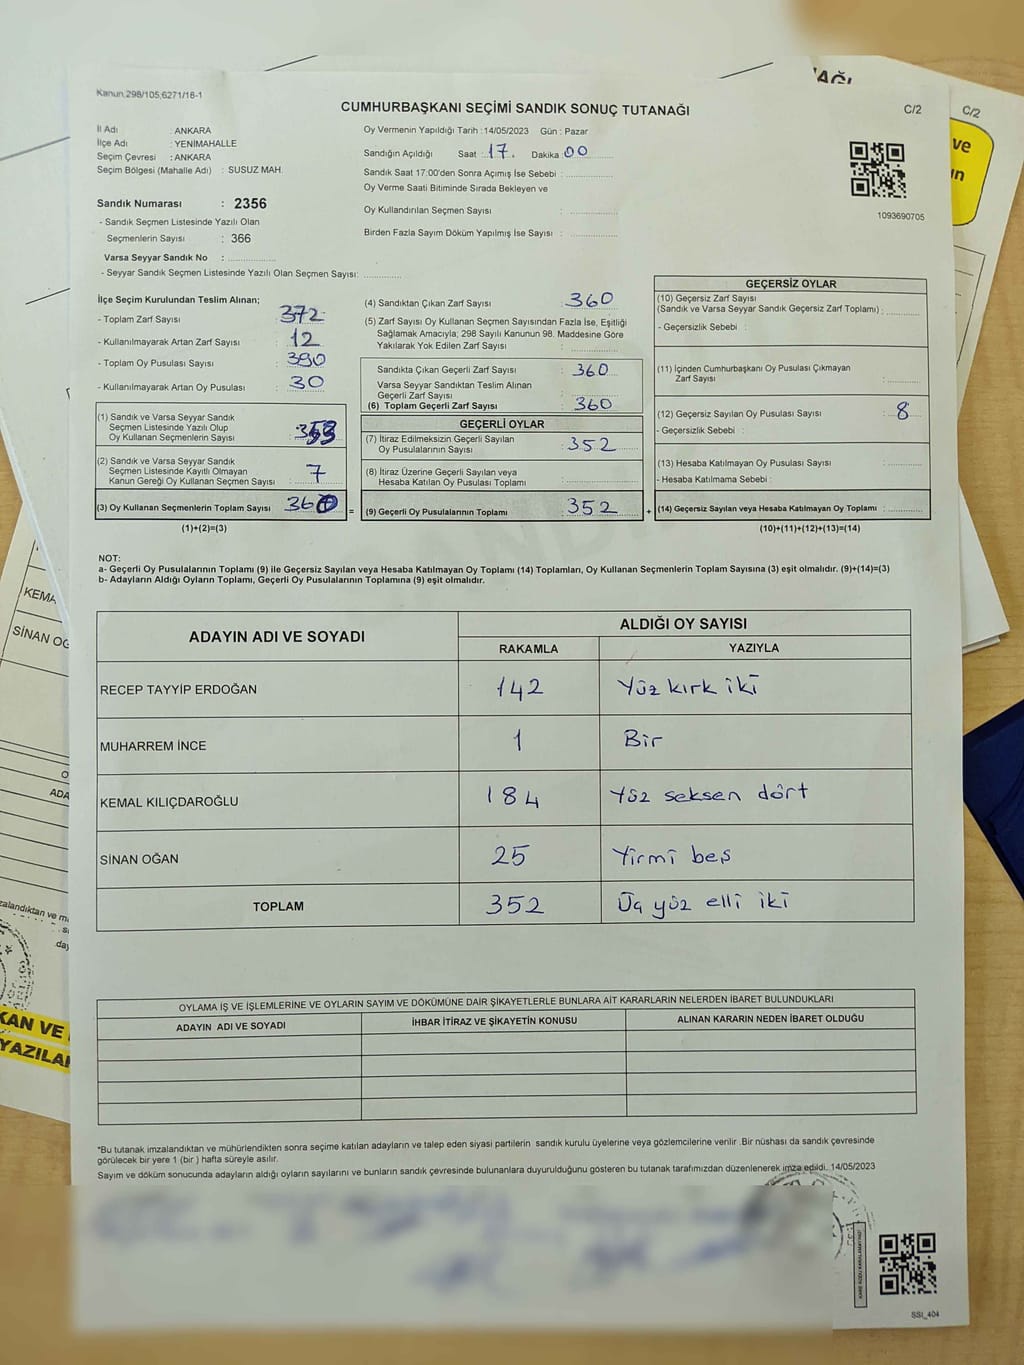 Kanun,298/105,6271/18-1
CUMHURBAŞKANI SEÇİMİ SANDIK SONUÇ TUTANAĞI
C/2
C/2
İl Adı : ANKARA
İlçe Adı : YENİMAHALLE
Seçim Çevresi : ANKARA
Seçim Bölgesi (Mahalle Adı) : SUSUZ MAH.
Sandık Numarası : 2356
- Sandık Seçmen Listesinde Yazılı Olan
Seçmenlerin Sayısı : 366
Varsa Seyyar Sandık No :
- Seyyar Sandık Seçmen Listesinde Yazılı Olan Seçmen Sayısı:
Oy Vermenin Yapıldığı Tarih : 14/05/2023 Gün : Pazar
Sandığın Açıldığı Saat : 17. Dakika : 00
Sandık Saat 17:00'den Sonra Açımış İse Sebebi :
Oy Verme Saati Bitiminde Sırada Bekleyen ve
Oy Kullandırılan Seçmen Sayısı :
Birden Fazla Sayım Döküm Yapılmış İse Sayısı :
1093690705
İlçe Seçim Kurulundan Teslim Alınan;
- Toplam Zarf Sayısı : 372
- Kullanılmayarak Artan Zarf Sayısı : 12
- Toplam Oy Pusulası Sayısı : 390
- Kullanılmayarak Artan Oy Pusulası : 30
(1) Sandık ve Varsa Seyyar Sandık
Seçmen Listesinde Yazılı Olup
Oy Kullanan Seçmenlerin Sayısı :
(2) Sandık ve Varsa Seyyar Sandık
Seçmen Listesinde Kayıtlı Olmayan
Kanun Gereği Oy Kullanan Seçmen Sayısı : 7
(3) Oy Kullanan Seçmenlerin Toplam Sayısı : 360
(1)+(2)=(3)
(4) Sandıktan Çıkan Zarf Sayısı : 360
(5) Zarf Sayısı Oy Kullanan Seçmen Sayısından Fazla İse, Eşitliği
Sağlamak Amacıyla; 298 Sayılı Kanunun 98. Maddesine Göre
Yakılarak Yok Edilen Zarf Sayısı :
Sandıkta Çıkan Geçerli Zarf Sayısı : 360
Varsa Seyyar Sandıktan Teslim Alınan
Geçerli Zarf Sayısı :
(6) Toplam Geçerli Zarf Sayısı : 360
GEÇERLİ OYLAR
(7) İtiraz Edilmeksizin Geçerli Sayılan
Oy Pusulalarının Sayısı : 352
(8) İtiraz Üzerine Geçerli Sayılan veya
Hesaba Katılan Oy Pusulası Toplamı :
= (9) Geçerli Oy Pusulalarının Toplamı : 352
GEÇERSİZ OYLAR
(10) Geçersiz Zarf Sayısı
(Sandık ve Varsa Seyyar Sandık Geçersiz Zarf Toplamı) :
- Geçersizlik Sebebi :
(11) İçinden Cumhurbaşkanı Oy Pusulası Çıkmayan
Zarf Sayısı :
(12) Geçersiz Sayılan Oy Pusulası Sayısı : 8
- Geçersizlik Sebebi :
(13) Hesaba Katılmayan Oy Pusulası Sayısı :
- Hesaba Katılmama Sebebi :
+ (14) Geçersiz Sayılan veya Hesaba Katılmayan Oy Toplamı :
(10)+(11)+(12)+(13)=(14)
NOT:
a- Geçerli Oy Pusulalarının Toplamı (9) ile Geçersiz Sayılan veya Hesaba Katılmayan Oy Toplamı (14) Toplamları, Oy Kullanan Seçmenlerin Toplam Sayısına (3) eşit olmalıdır. (9)+(14)=(3)
b- Adayların Aldığı Oyların Toplamı, Geçerli Oy Pusulalarının Toplamına (9) eşit olmalıdır.
ADAYIN ADI VE SOYADI
ALDIĞI OY SAYISI
RAKAMLA YAZIYLA
RECEP TAYYİP ERDOĞAN 142 Yüz kırk iki
MUHARREM İNCE 1 Bir
KEMAL KILIÇDAROĞLU 184 Yüz seksen dört
SİNAN OĞAN 25 Yirmi beş
TOPLAM 352 Üç yüz elli iki
OYLAMA İŞ VE İŞLEMLERİNE VE OYLARIN SAYIM VE DÖKÜMÜNE DAİR ŞİKAYETLERLE BUNLARA AİT KARARLARIN NELERDEN İBARET BULUNDUKLARI
ADAYIN ADI VE SOYADI İHBAR İTİRAZ VE ŞİKAYETİN KONUSU ALINAN KARARIN NEDEN İBARET OLDUĞU
*Bu tutanak imzalandıktan ve mühürlendikten sonra seçime katılan adayların ve talep eden siyasi partilerin sandık kurulu üyelerine veya gözlemcilerine verilir .Bir nüshası da sandık çevresinde
görülecek bir yere 1 (bir ) hafta süreyle asılır.
Sayım ve döküm sonucunda adayların aldığı oyların sayılarını ve bunların sandık çevresinde bulunanlara duyurulduğunu gösteren bu tutanak tarafımızdan düzenlenerek imza edildi. 14/05/2023
SSI_404
KAN VE
YAZILA